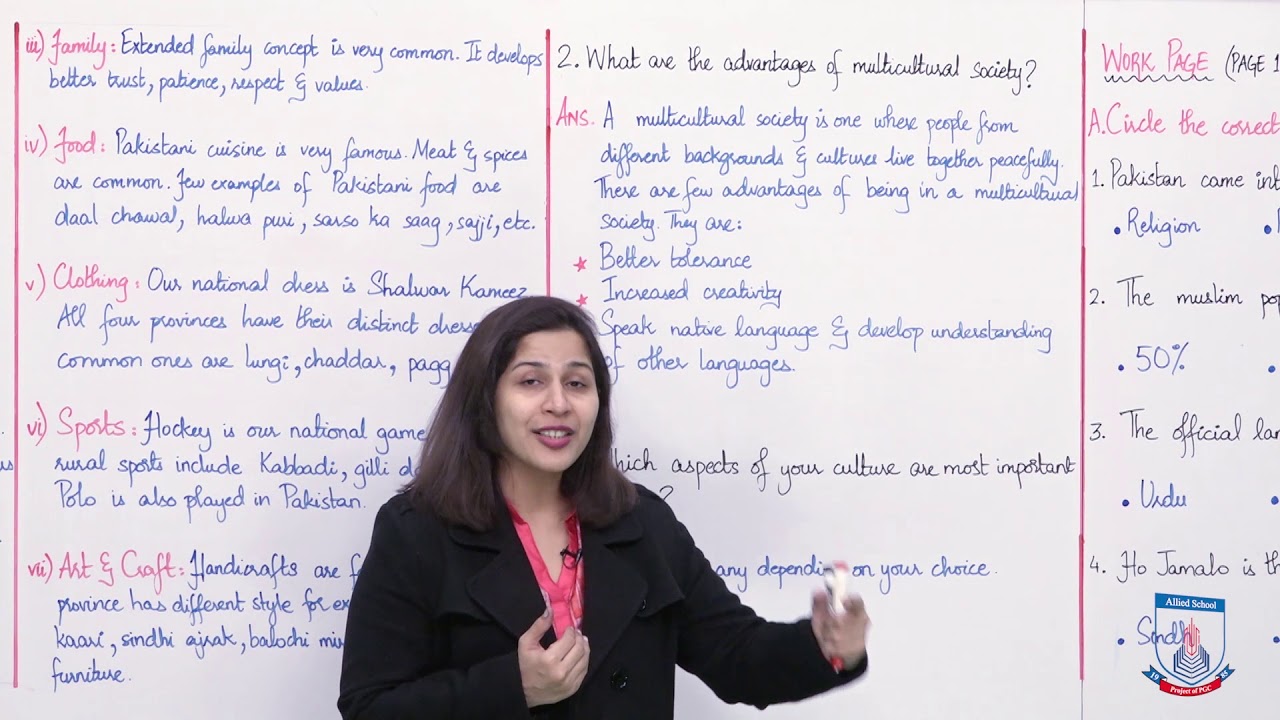 iii) Family: Extended family concept is very common. It develops
better trust, patience, respect & values.
iv) Food: Pakistani cuisine is very famous. Meat & spices
are common. Few examples of Pakistani food are
daal chawal, halwa puri, sarso ka saag, sajji, etc.
v) Clothing: Our national dress is Shalwar Kameez
All four provinces have their distinct
common ones are lungi, chaddar,
vi) Sports: Hockey is our national game
rural sports include Kabbadi, gilli
Polo is also played in Pakistan.
vii) Art & Craft: Handicrafts are
province has different style for
kaari, sindhi ajrak, balochi
furniture.
2. What are the advantages of multicultural society?
Ans. A multicultural society is one where people from
different backgrounds & cultures live together peacefully.
There are few advantages of being in a multicultural
society. They are:
Better tolerance
Increased creativity
Speak native language & develop understanding
of other languages.
aspects of your culture are most important
?
depending on your choice.
WORK PAGE (PAGE 1
A. Circle the correct
1. Pakistan came
• Religion
2. The muslim
• 50%
3. The official
• Urdu
4. Ho Jamalo is
• Sindhi
Allied School
19 85
Project of PGC